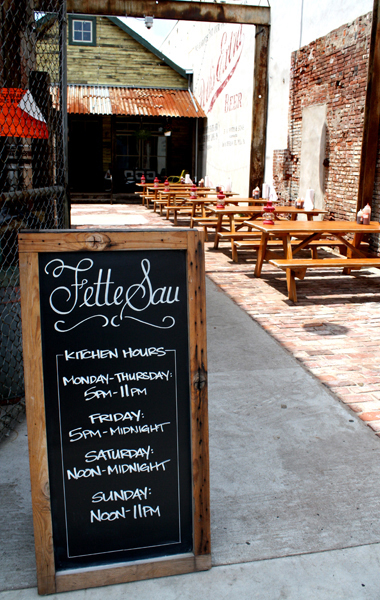 Fette Sau
KITCHEN HOURS
MONDAY-THURSDAY:
5PM-11PM
FRIDAY:
5PM-MIDNIGHT
SATURDAY:
NOON-MIDNIGHT
SUNDAY:
NOON-11PM
BEER